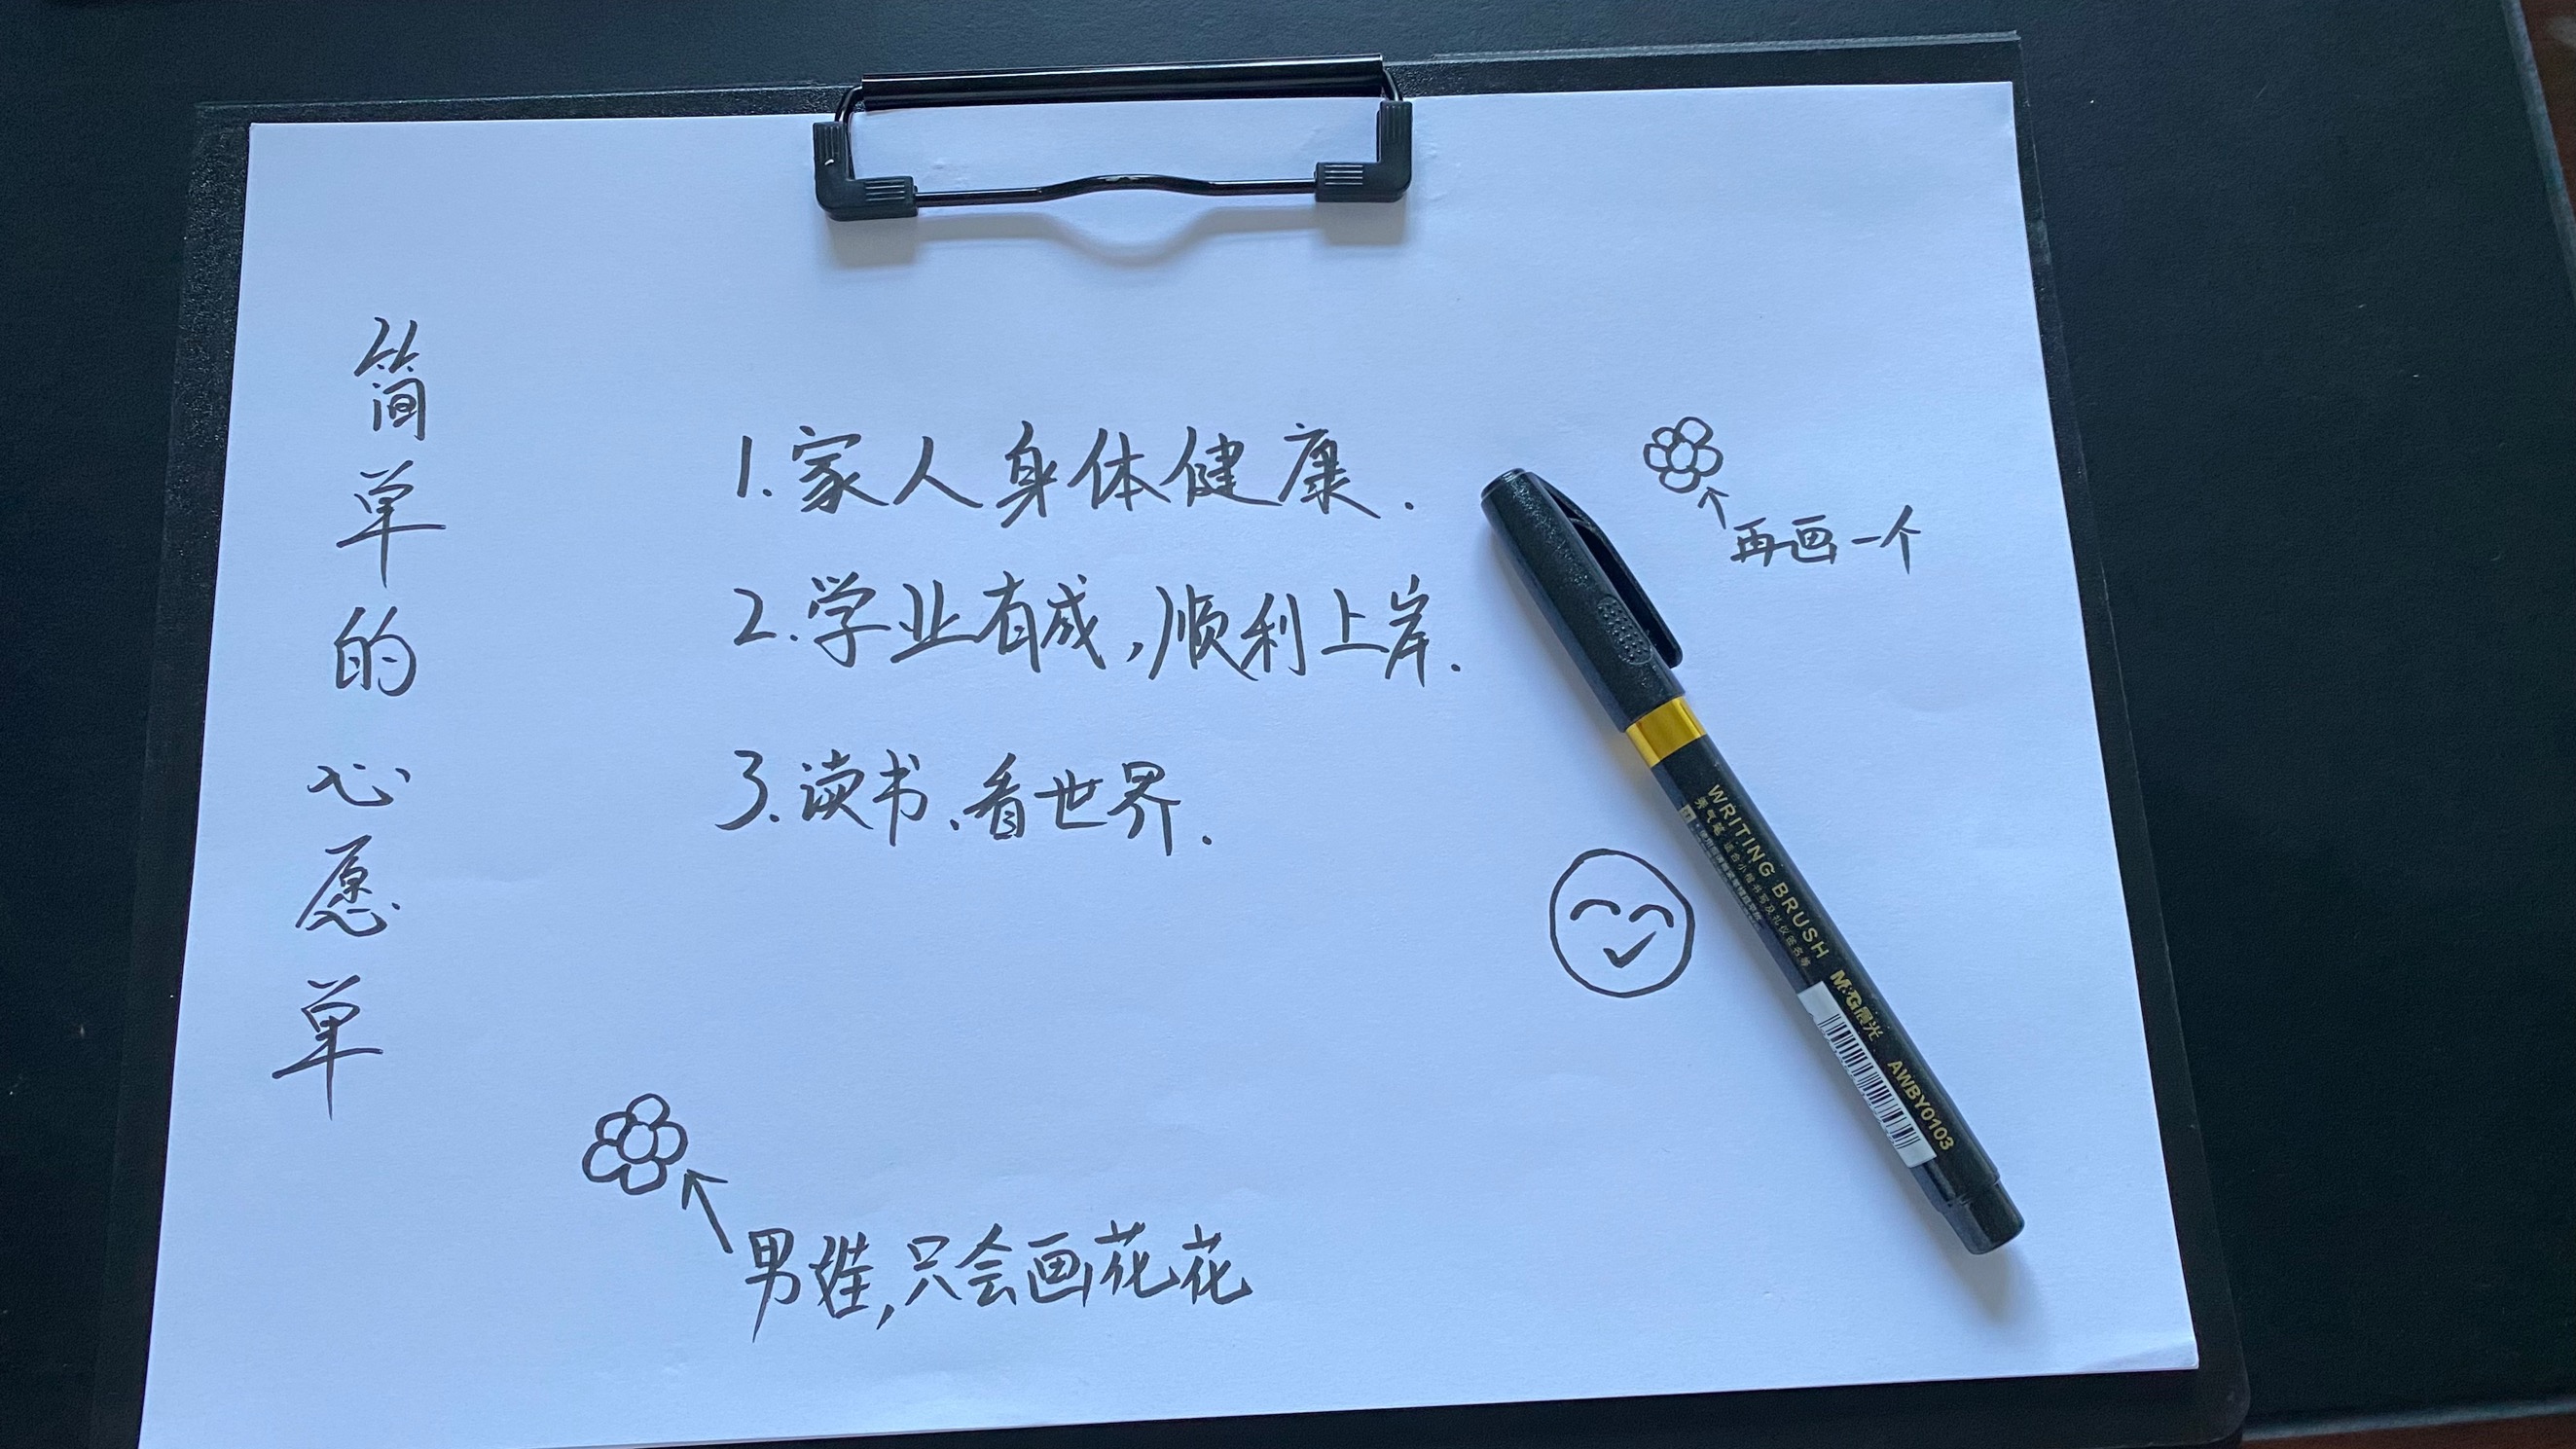 简单的心愿单
1.家人身体健康.
2.学业有成,顺利上岸.
3.读书、看世界.
再画一个
男娃,只会画花花
WRITING BRUSH M&G晨光 AWBY0103